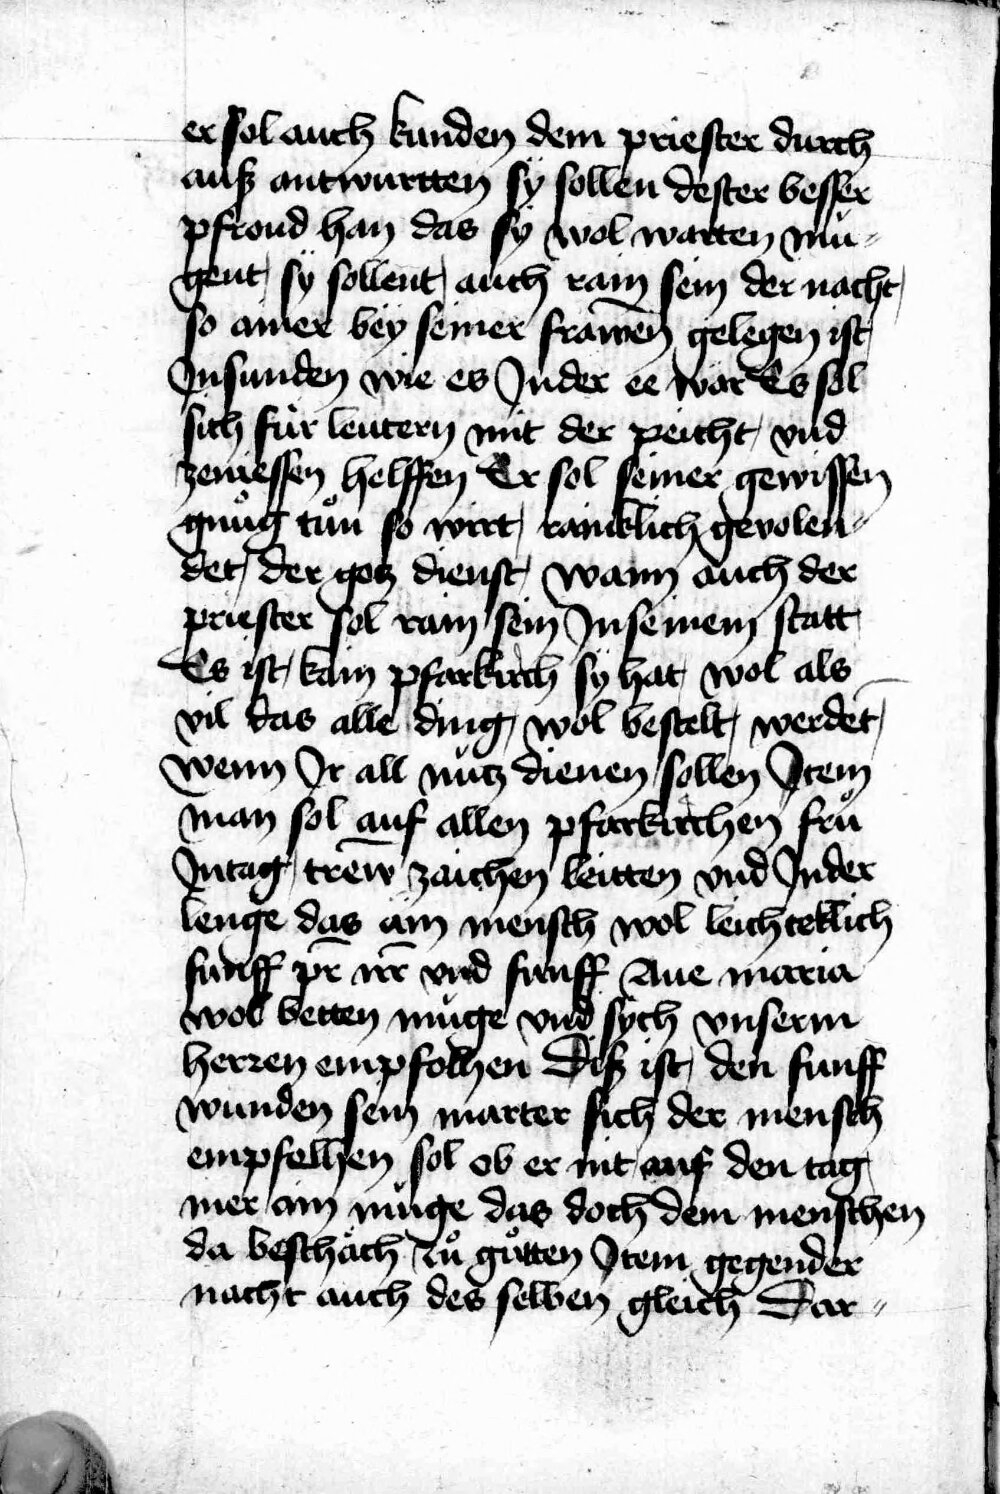 er sol auch kunden dem priester durch
auß antwurtten sÿ sollen dester besser
pfrond han das sÿ wol warten mü-
gent sÿ sollent auch rain sein der nacht
so ainer beÿ seiner frawen̄ gelegen ist
Jnsunden wie es Jnder ee wär Es sol
sich für leutern mit der peicht vnd
zeniessen helffen Er sol seiner gewissen
gnůg tůn so wirt rainklich gevolen-
det der gotz dienst wann auch der
priester sol rain sein Jnseinem statt
Es ist kain pfarkirch sÿ hat wol als
vil das alle ding wol bestelt werden̄t
wenn Jr all nütz dienen sollen Jtem
man sol auf allen pfarkirchen frů
Jntag trew̄ zaichen leitten vnd Jnder
lenge das ain mensch wol leichteklich
funff pr̄ nr̄ vnd funff Aue maria
wol betten müge vnd sÿch vnserm
herren empfolhen Diß ist den funff
wunden sein marter sich der mensch
empfelhen sol ob er nit auf den tag
mer ain müge das doch dem menschen
da beschäch zů gůtten Jtem gegender
nacht auch des selben gleich Dar-